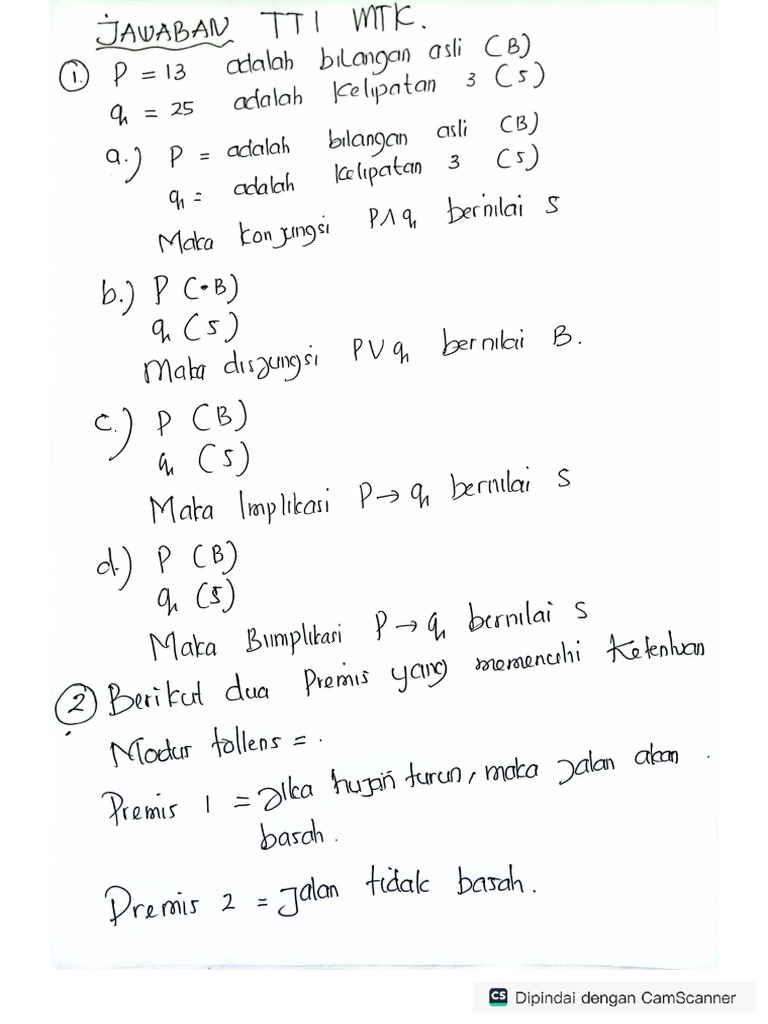 JAWABAN TT1 MTK.
1. P = 13 adalah bilangan asli (B)
q = 25 adalah kelipatan 3 (S)
a.) P = adalah bilangan asli (B)
q = adalah kelipatan 3 (S)
Maka konjungsi P∧q bernilai S
b.) P (B)
q (S)
Maka disjungsi P∨q bernilai B.
c.) P (B)
q (S)
Maka Implikasi P→q bernilai S
d.) P (B)
q (S)
Maka Biimplikasi P→q bernilai S
2 Berikut dua Premis yang memenuhi ketentuan
Modus tollens =.
Premis 1 = Jika hujan turun, maka jalan akan
basah.
Premis 2 = Jalan tidak basah.
CS Dipindai dengan CamScanner